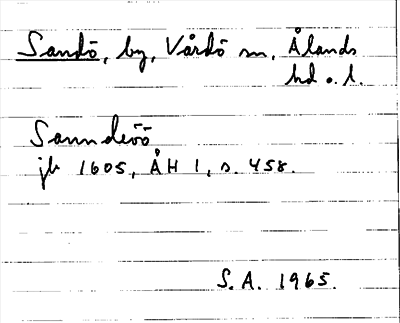 Sandö, by, Vårdö sn, Ålands
hd o. l.
Sanndeöö
jb 1605, ÅH 1, s. 458.
S.A. 1965.